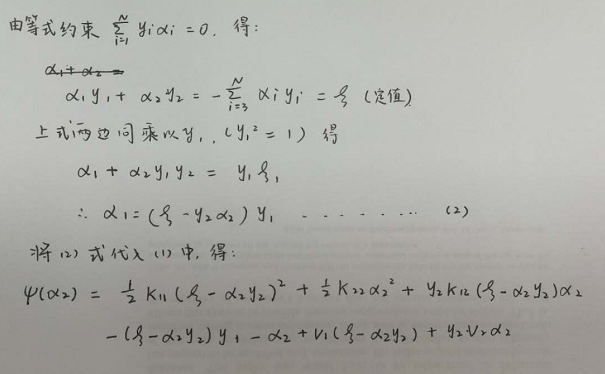 由等式约束 ∑_{i=1}^{N} yᵢαᵢ = 0. 得:
α₁ + α₂ =
α₁y₁ + α₂y₂ = -∑_{i=3}^{N} αᵢyᵢ = ξ (定值)
上式两边同乘以y₁, (y₁² = 1) 得
α₁ + α₂y₁y₂ = y₁ξ,
∴ α₁ = (ξ - y₂α₂) y₁ ········ (2)
将(2)式代入(1)中, 得:
ψ(α₂) = ½K₁₁(ξ - α₂y₂)² + ½K₂₂α₂² + y₂K₁₂(ξ - α₂y₂)α₂
-(ξ - α₂y₂)y₁ - α₂ + V₁(ξ - α₂y₂) + y₂V₂α₂